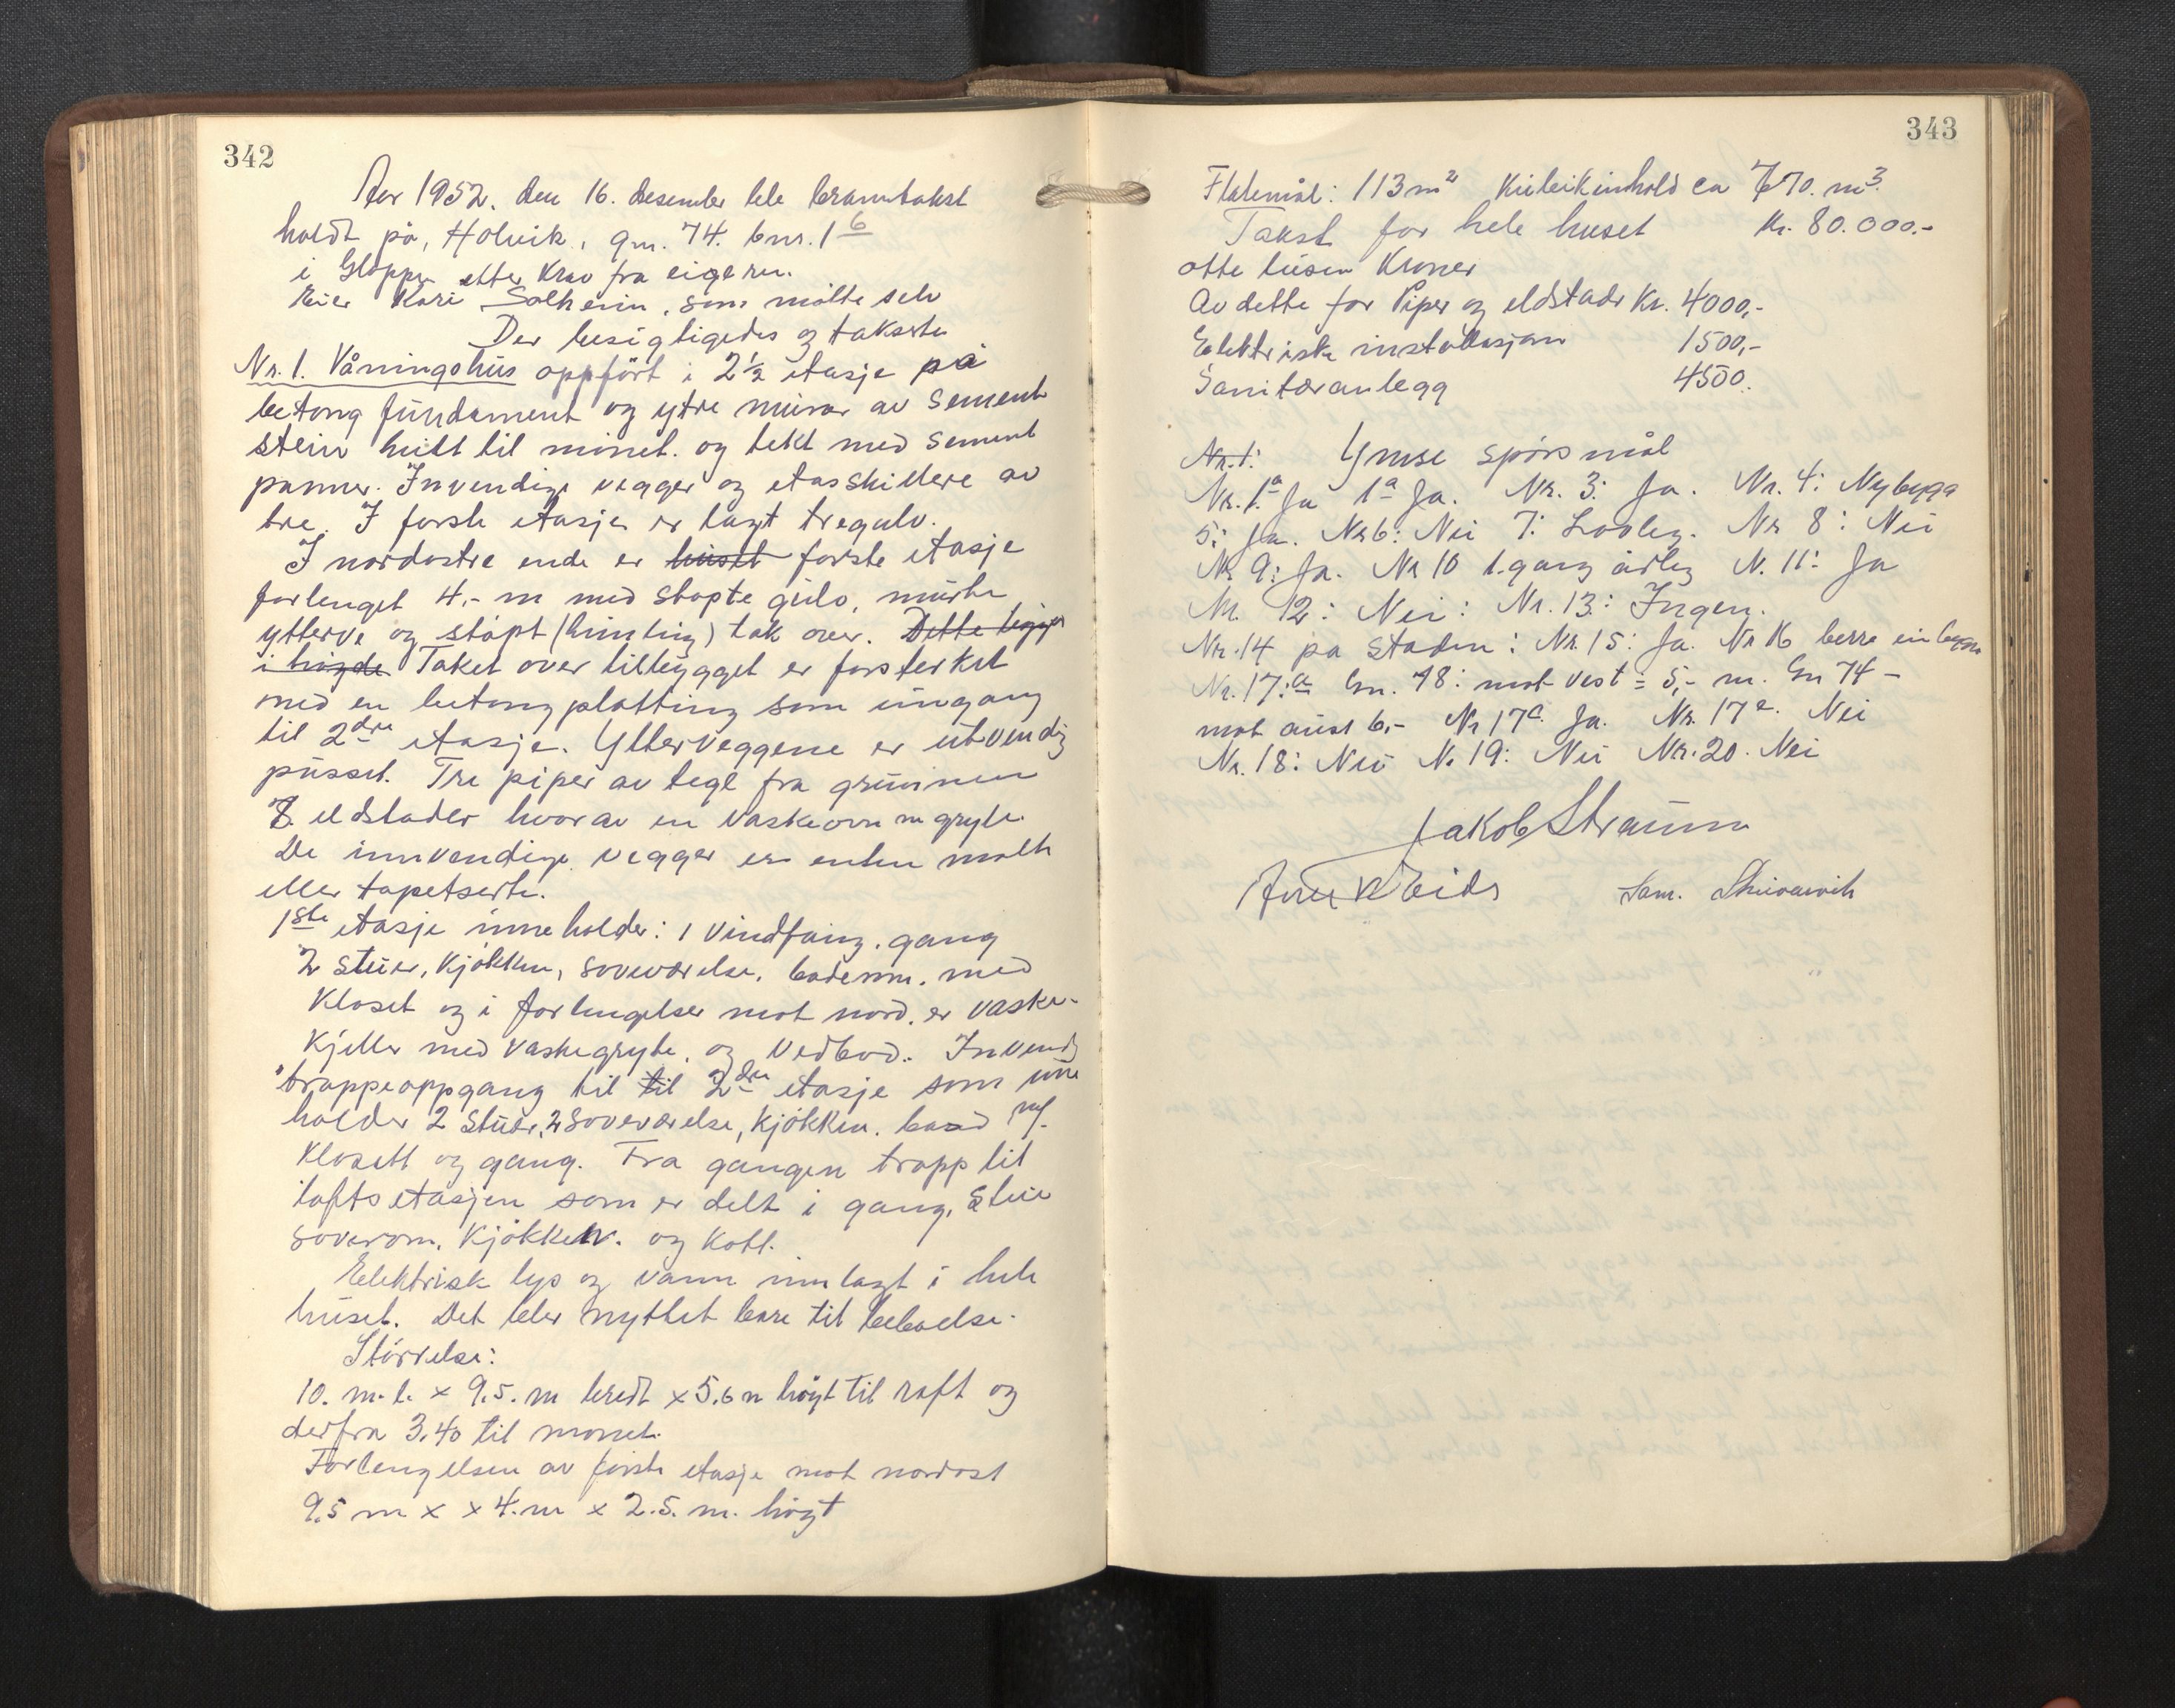 342
Aar 1952. den 16. desember ble branntakst
holdt på, Holvik, gnr. 74. bnr. 16
i Gloppen etter krav fra eigeren.
Eier Kari Solheim, som møtte selv
Der besigtigedes og takserte
Nr. 1. Våningshus oppført i 2½ etasje på
betong fundament og ytre murer av sement
stein heilt til mønet. og tekt med sement
panner. Invendige vegger og etasskillere av
tre. I første etasje er lagt tregulv.
I nordøstre ende er huset første etasje
forlenget 4,- m med støpte gulv, murte
ytterve og støpt (himling) tak over. Dette ligger
i høgde Taket over tilbygget er forsterket
med en betongplatting som inngang
til 2dre etasje. Ytterveggene er utvendig
pusset. Tre piper av tegl fra grunnen
8 eldstader hvorav en vaskeovn m gryte.
De innvendige vegger er enten malte
eller tapetserte.
1ste etasje inneholder: 1 vindfang. gang
2 stuer, Kjøkken, soveværelse, baderom. med
Kloset og i forlengelser mot nord. er vaske-
Kjeller med vaskegryte. og vedbod. Invend
trappeoppgang til til 2dre etasje som inne
holder 2 stuer, 2 soveværelse, kjøkken. baad m/
Klosett og gang. Fra gangen trapp til
loftsetasjen som er delt i gang, stue
soverom. Kjøkken. og Kott.
Elektrisk lys og vann innlagt i hele
huset. Det blir nyttet bare til beboelse.
Størrelse:
10. m. l. x 9.5. m bredt x 5.6 m høgt til raft og
derfra 3.40 til mønet.
Forlengelsen av første etasje mot nordøst
9.5 m x x 4. m x 2.5. m. høgt
343
Flatemål: 113 m² Kubikinhold ca 670. m³.
Takst for hele huset Kr. 80.000.-
otte tusen Kroner
Av dette for Piper og eldstade Kr. 4000,-
Elektriske installasjon 1500,-
Sanitæranlegg 4500.
Nr. 1: Ymse spørsmål
Nr. 1. Ja 1a Ja. Nr. 3: Ja. Nr. 4: Nybygg
5: Ja. Nr 6: Nei 7: Lovleg. Nr 8: Nei
Nr 9: Ja. Nr 10 1. gang årleg N. 11: Ja
Nr. 12: Nei: Nr. 13: Ingen.
Nr. 14 pa staden: Nr. 15: Ja. Nr 16 berre ein bygn
Nr. 17: a Gn. 78: mot vest = 5,- m. Gn 74 -
mot aust 6,- Nr 17c. Ja. Nr. 17e. Nei
Nr. 18: Nei N. 19: Nei Nr. 20. Nei
Jakob Straum
Eide Sam.